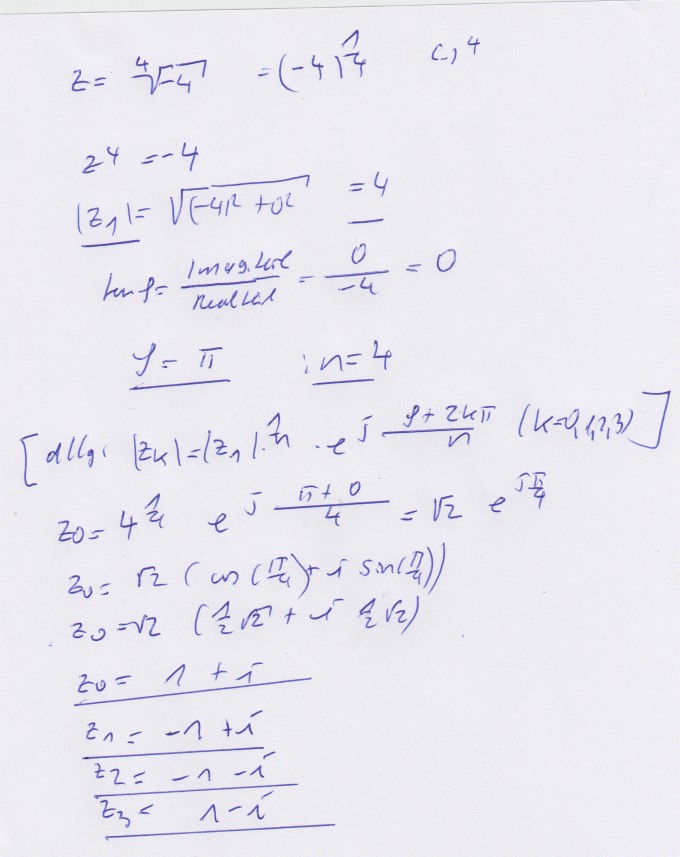 z = ∜-4 = (-4)^1/4 c, 4
z^4 = -4
|z1| = √(-4)² + 0² = 4
tan φ = Imag.teil / Realteil = 0 / -4 = 0
φ = π ; n = 4
[allg: |zk| = |z1|^1/n · e^j (φ + 2kπ)/n (k=0,1,2,3)]
z0 = 4^1/4 e^j (π + 0)/4 = √2 e^jπ/4
z0 = √2 (cos(π/4) + i sin(π/4))
z0 = √2 (1/2 √2 + i 1/2 √2)
z0 = 1 + i
z1 = -1 + i
z2 = -1 - i
z3 = 1 - i